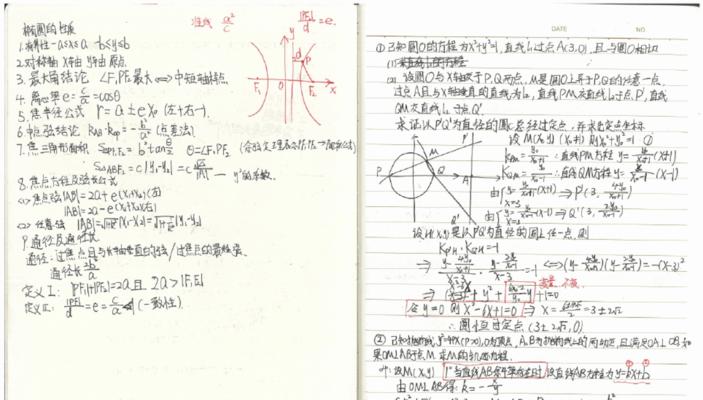 椭圆的性质
1. 有界性 -a≤x≤a -b≤y≤b
2. 对称轴 X轴 Y轴 原点
3. 最大角结论 ∠F₁PF₂最大 ⟺ 中短轴端点
4. 离心率 e = c/a = cosθ
5. 焦半径公式 r = a ± ex₀ (左+右-)
6. 中点弦结论 k_AB·k_op = -b²/a² (点差法)
7. 焦三角形面积 S△PF₁F₂ = b²tanθ/2 θ=∠F₁PF₂
S△ABF₂ = c|y₁-y₂| = c
8. 焦点弦及弦长公式
⟺ 焦点弦|AB|=2a+e(x₁+x₂)(左)
|AB|=2a-e(x₁+x₂)(右)
⟺ 任意弦 |AB|=√1+k² |x₁-x₂|=√1+1/k² |y₁-y₂|
9 通径及通径长
通径: 过焦点且与长轴垂直的弦/过焦点的最短弦
通径长 2b²/a
定义Ⅰ: |PF₁|+|PF₂|=2a 且 2a>|F₁F₂|
定义Ⅱ: |PF|/d = e = c/a <1 (一致性)
准线 a²/c
|PF|/d = e.
y
d
P
F₁
F₂
x
DATE NO
① 已知圆O的方程为x²+y²=1, 直线l₁过点A(3,0), 且与圆O相切
(2) 设圆O与X轴交于P,Q两点, M是圆O上异于P,Q的任意一点,
过点A且与X轴垂直的直线为l₂, 直线PM交直线l₂于点P', 直线
QM交直线l₂于点Q'
求证以P'Q'为直径的圆C总经过定点, 并求出定点坐标
设M(x₀,y₀) 则x₀²+y₀²=1 ①
k_PM = y₀/x₀+1 ∴直线PM方程 y = y₀/x₀+1 (x+1)
k_QM = y₀/x₀-1 ∴直线QM方程 y = y₀/x₀-1 (x-1)
由 y = y₀/x₀+1 (x+1) x=3 ⇒ P'(3, 4y₀/x₀+1)
由 y = y₀/x₀-1 (x-1) x=3 ⇒ Q'(3, 2y₀/x₀-1)
P
M
Q
A
Q'
设H(x,y)是以P'Q'为直径的圆上任一点, 则
k_P'H · k_Q'H = -1
⟺ (y - 4y₀/x₀+1)(y - 2y₀/x₀-1) = -(x-3)²
令y=0 则 x²-6x+1=0 ⇒ x = = 3±2√2
∴圆C恒过定点 (3±2√2, 0)
② 已知抛物线y²=4px(p>0), O为顶点, A,B为抛物线上的两动点, 且满足OA⊥OB, 如
果OM⊥AB于点M, 求M的轨迹方程.
解: 设M(x,y) 1°当直线AB斜率存在时, 设直线AB方程为 y=kx+b
由OM⊥AB得: k = -x/y